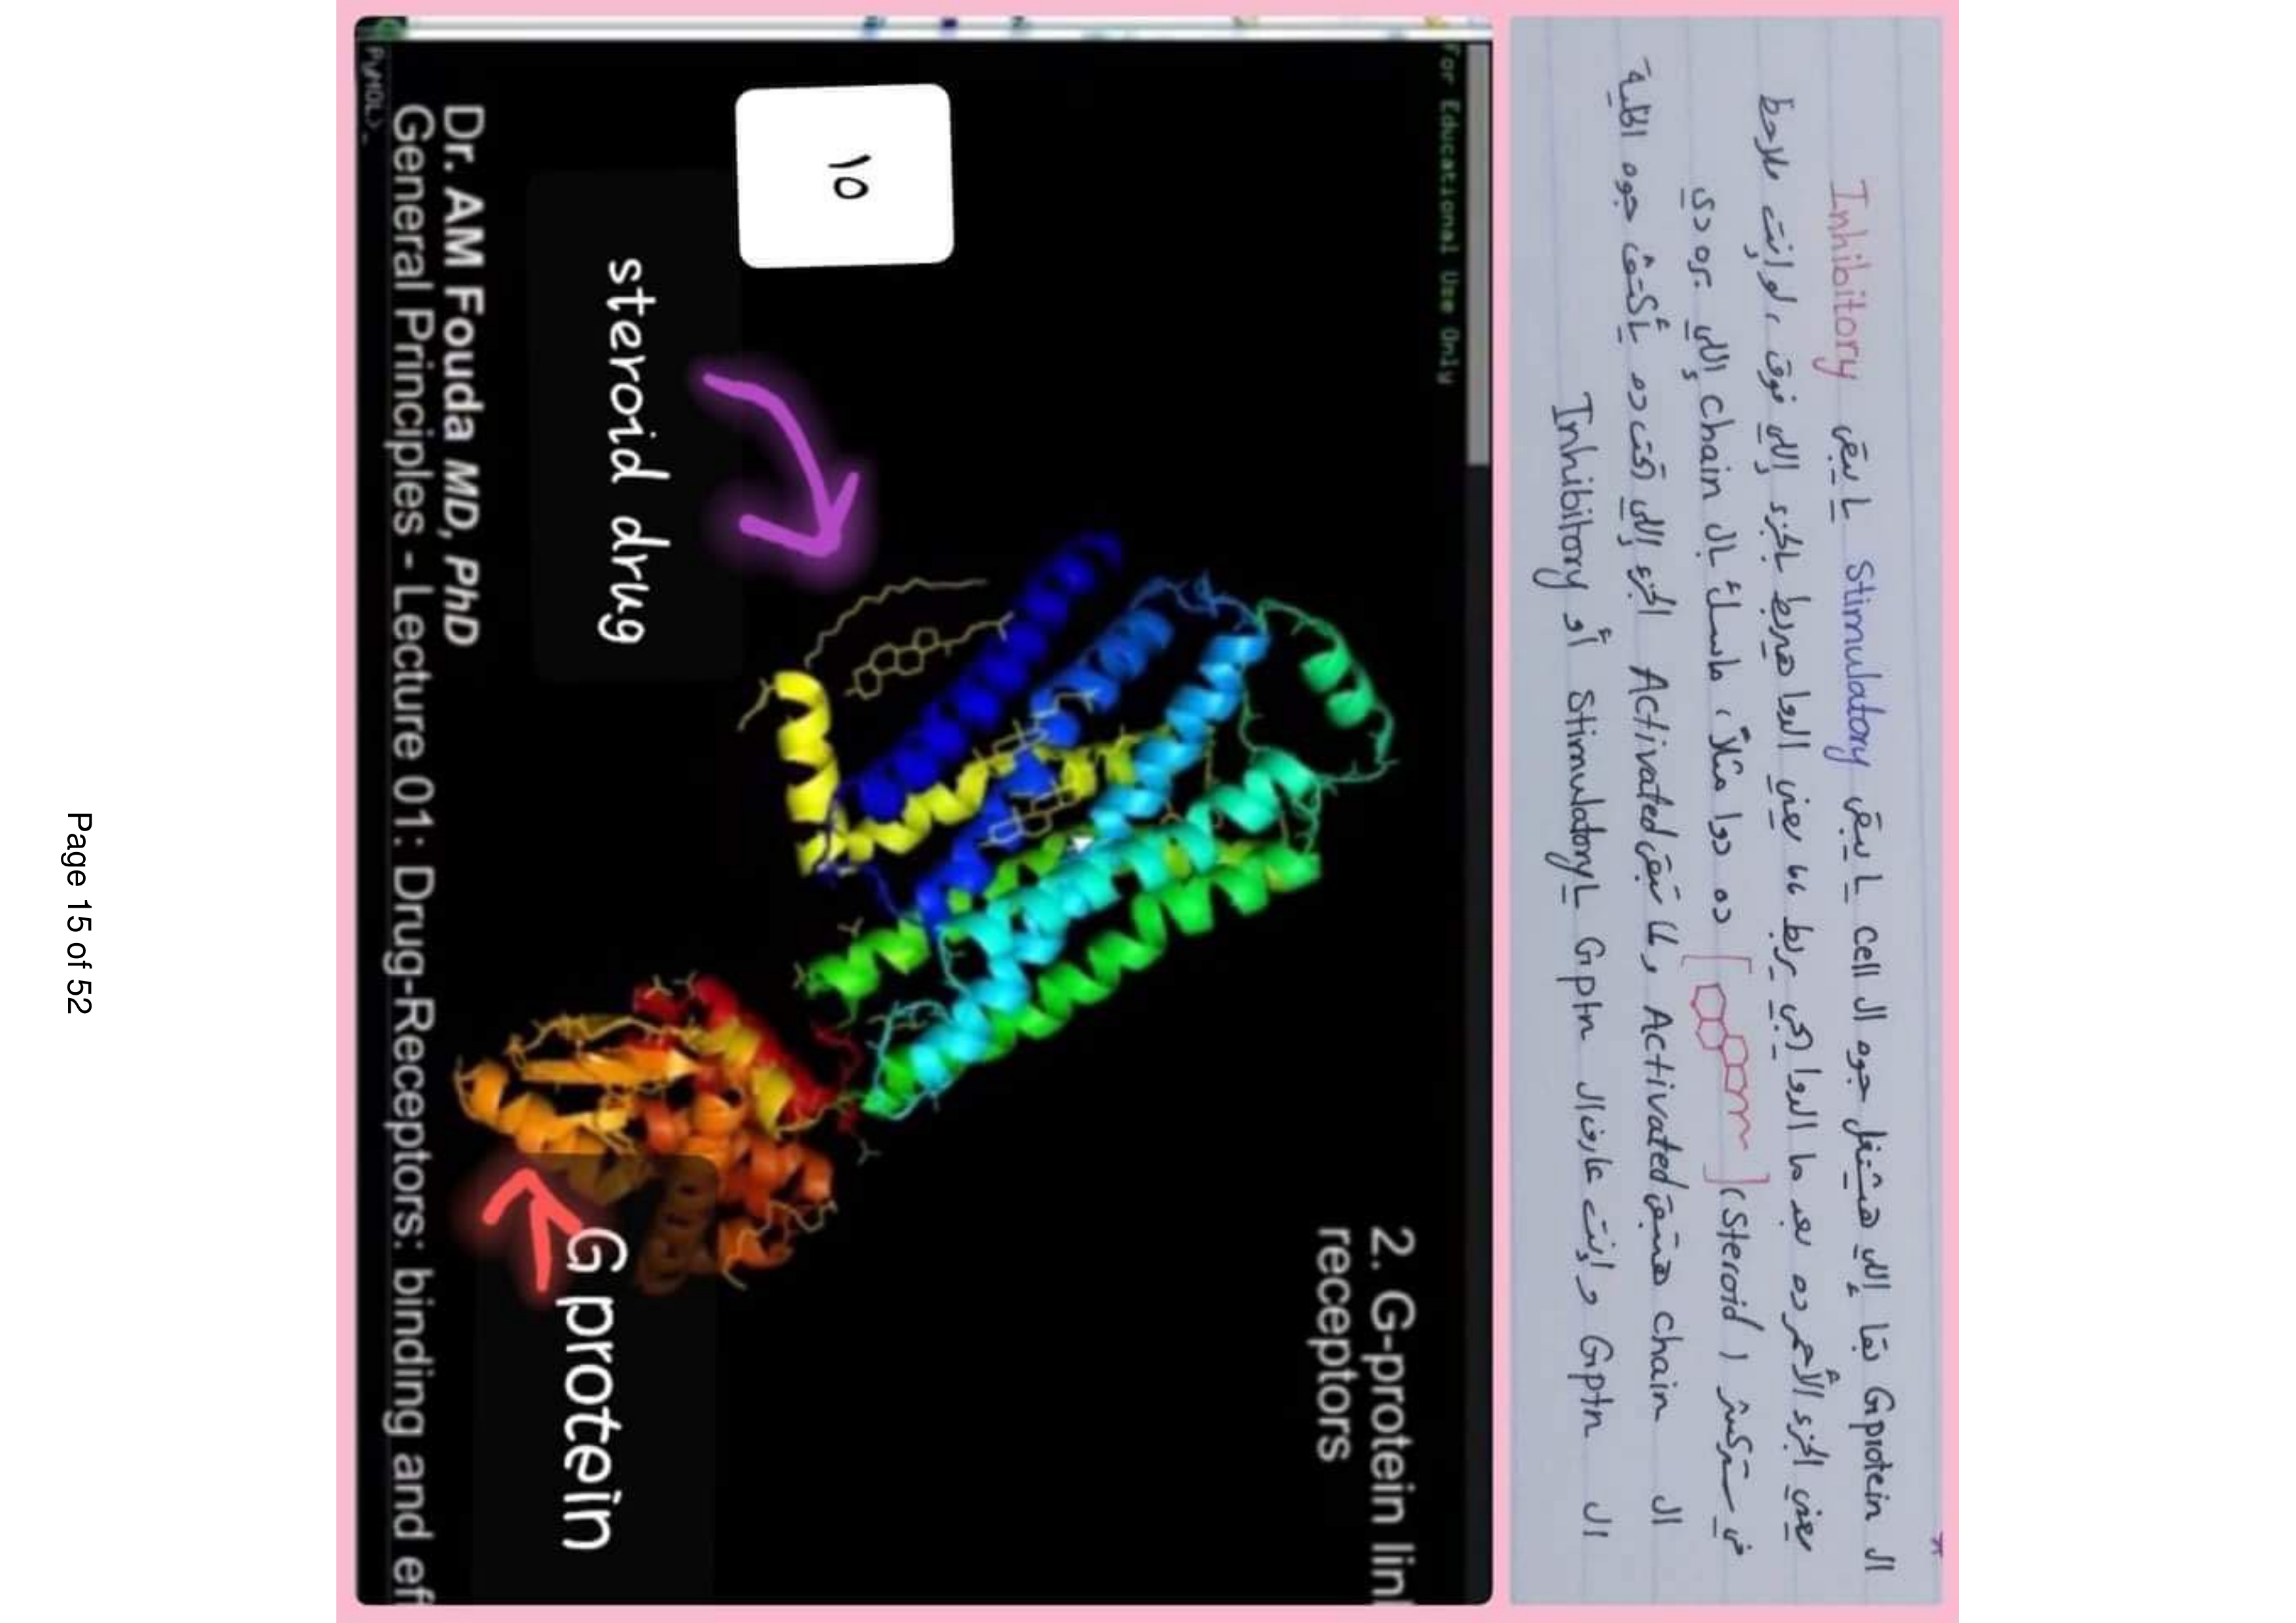 ال G protein بقا إللي هيشتغل جوه ال cell يا يبقى Stimulatory يا يبقى Inhibitory
يعني الجزء الأحمر ده بعد ما الدوا يجي يربط يعني الدوا هيربط بالجزء إللي فوق، لو إنت ملاحظ
في ستركشر (Steroid) ده دوا مثلاً، ماسك بال chain إللي بره دي
ال chain هتبقى Activated ولما تبقى Activated الجزء إللي تحت ده جوه الخلية
ال G ptn وإنت عارف ال G ptn يا Stimulatory أو Inhibitory
For Educational Use Only
2. G-protein lin
receptors
١٥
steroid drug
G protein
Dr. AM Fouda MD, PhD
General Principles - Lecture 01: Drug-Receptors: binding and ef
PyMOL>_
Page 15 of 52